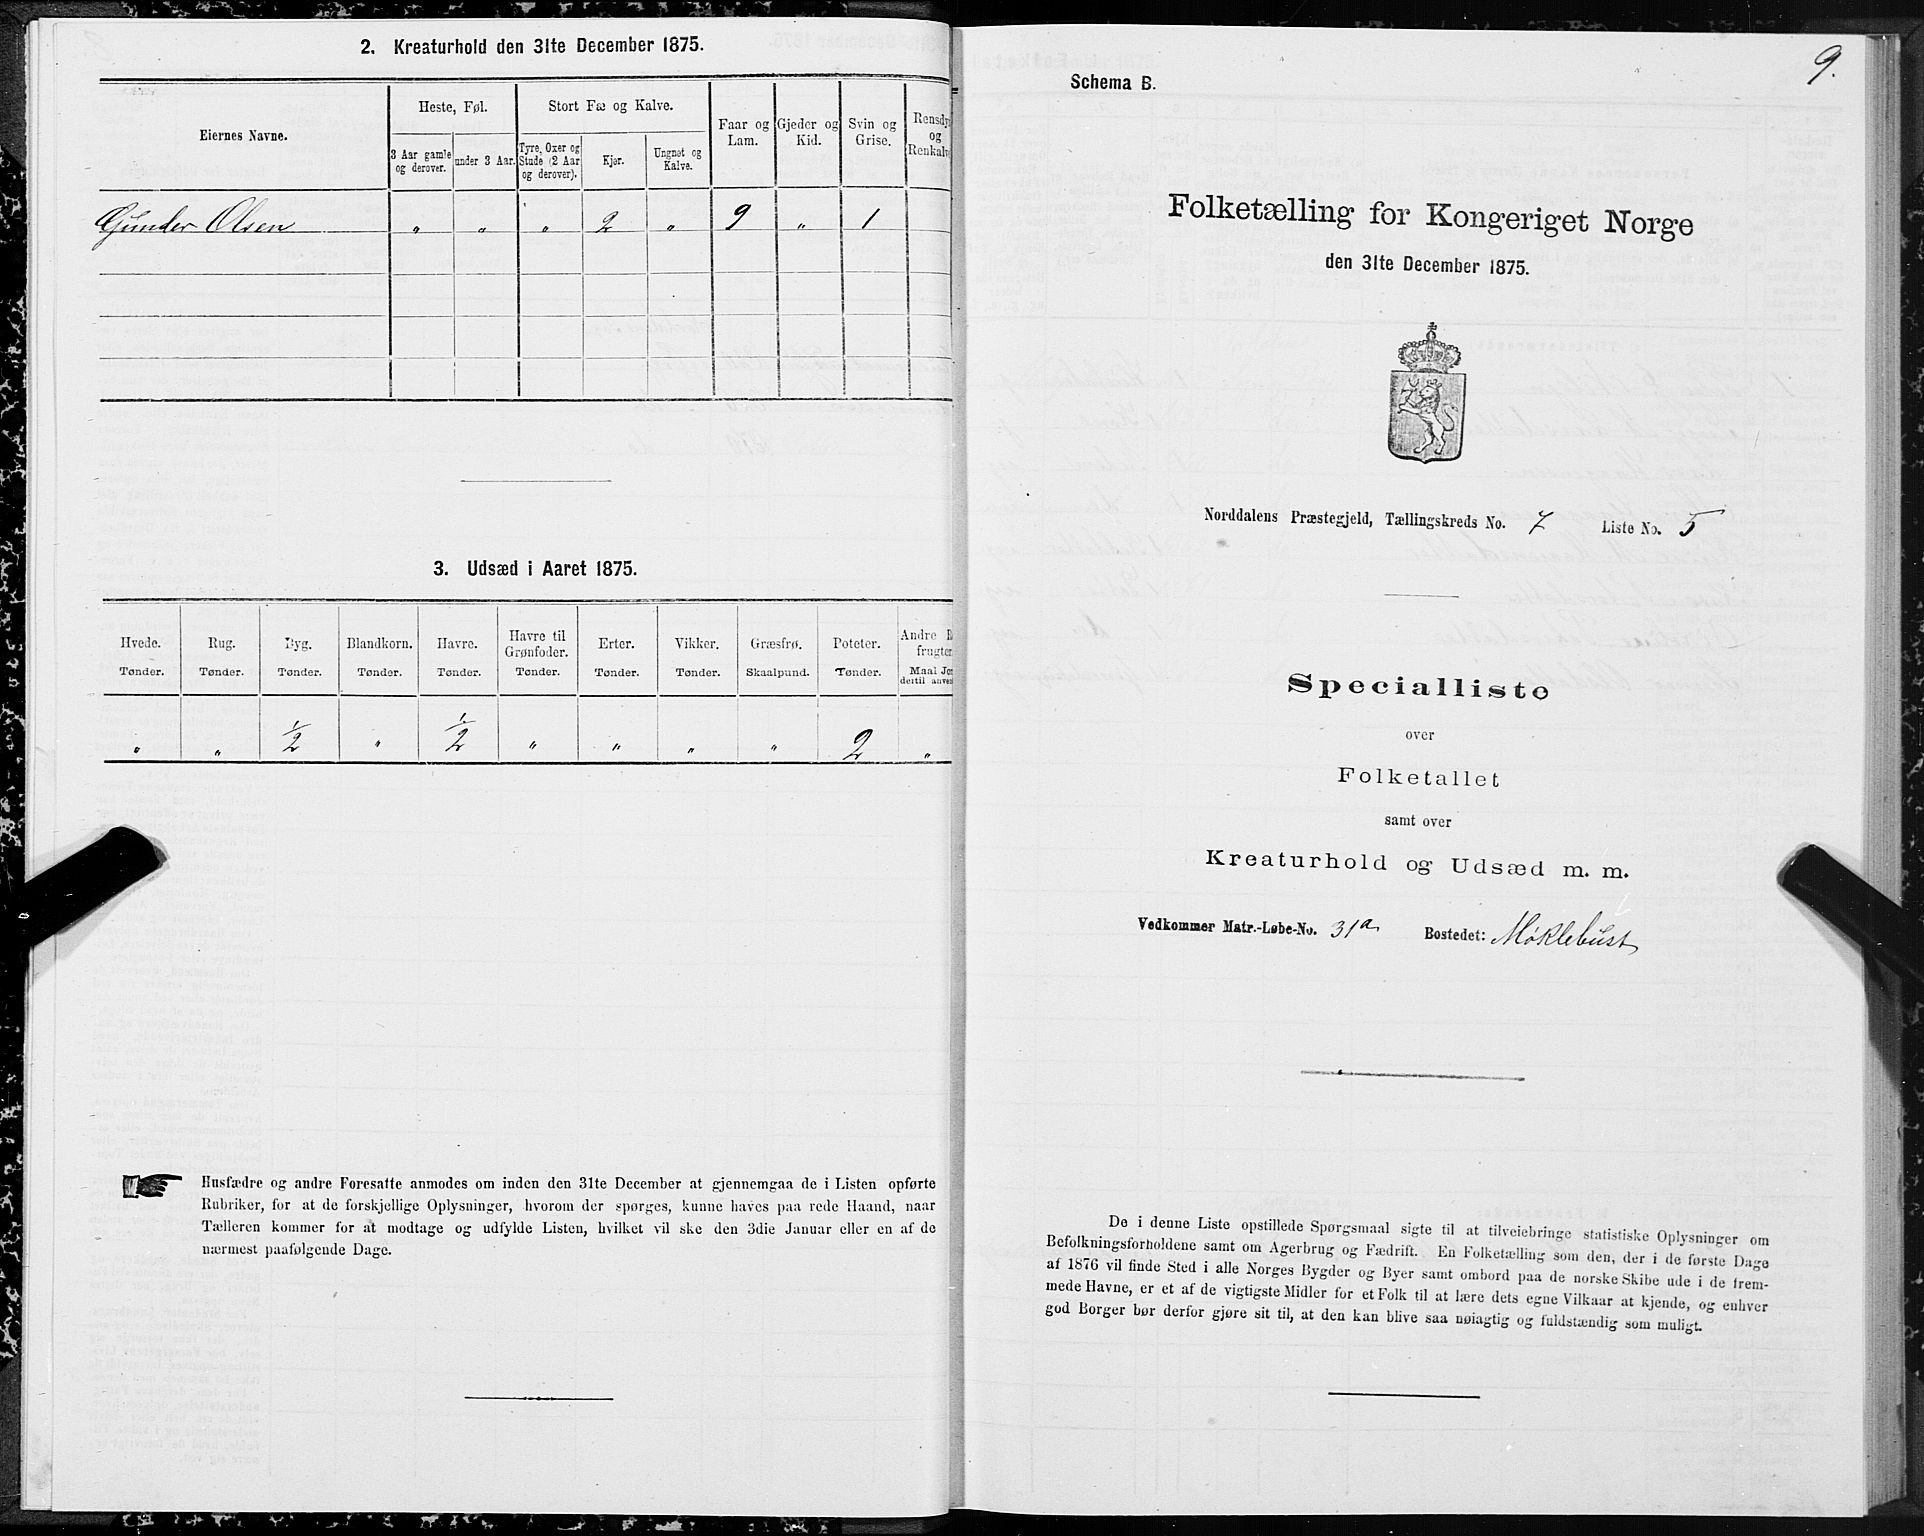 2. Kreaturhold den 31te December 1875.
Eiernes Navne.
Heste, Føl.
3 Aar gamle og derover.
under 3 Aar.
Stort Fæ og Kalve.
Tyre, Oxer og Stude (2 Aar og derover).
Kjør.
Ungnøt og Kalve.
Faar og Lam.
Gjeder og Kid.
Svin og Grise.
Rensdy
og
Renkalv
Gunder Olsen " " " 2 " 9 " 1
3. Udsæd i Aaret 1875.
Hvede. Rug. Byg. Blandkorn. Havre. Havre til Grønfoder. Erter. Vikker. Græsfrø. Poteter. Andre R
frugter
Tønder. Tønder. Tønder. Tønder. Tønder. Tønder. Tønder. Tønder. Skaalpund. Tønder. Maal Jor
dertil anven
" " 1/2 " 1/2 " " " " 2 "
Husfædre og andre Foresatte anmodes om inden den 31te December at gjennemgaa de i Listen opførte
Rubriker, for at de forskjellige Oplysninger, hvorom der spørges, kunne haves paa rede Haand, naar
Tælleren kommer for at modtage og udfylde Listen, hvilket vil ske den 3die Januar eller en af de
nærmest paafølgende Dage.
9.
Schema B.
Folketælling for Kongeriget Norge
den 31te December 1875.
Norddalens Præstegjeld, Tællingskreds No. 7 Liste No. 5
Specialliste
over
Folketallet
samt over
Kreaturhold og Udsæd m. m.
Vedkommer Matr.-Løbe-No. 31a Bostedet: Møklebust
De i denne Liste opstillede Spørgsmaal sigte til at tilveiebringe statistiske Oplysninger om
Befolkningsforholdene samt om Agerbrug og Fædrift. En Folketælling som den, der i de første Dage
af 1876 vil finde Sted i alle Norges Bygder og Byer samt ombord paa de norske Skibe ude i de frem-
mede Havne, er et af de vigtigste Midler for et Folk til at lære dets egne Vilkaar at kjende, og enhver
god Borger bør derfor gjøre sit til, at den kan blive saa nøiagtig og fuldstændig som muligt.